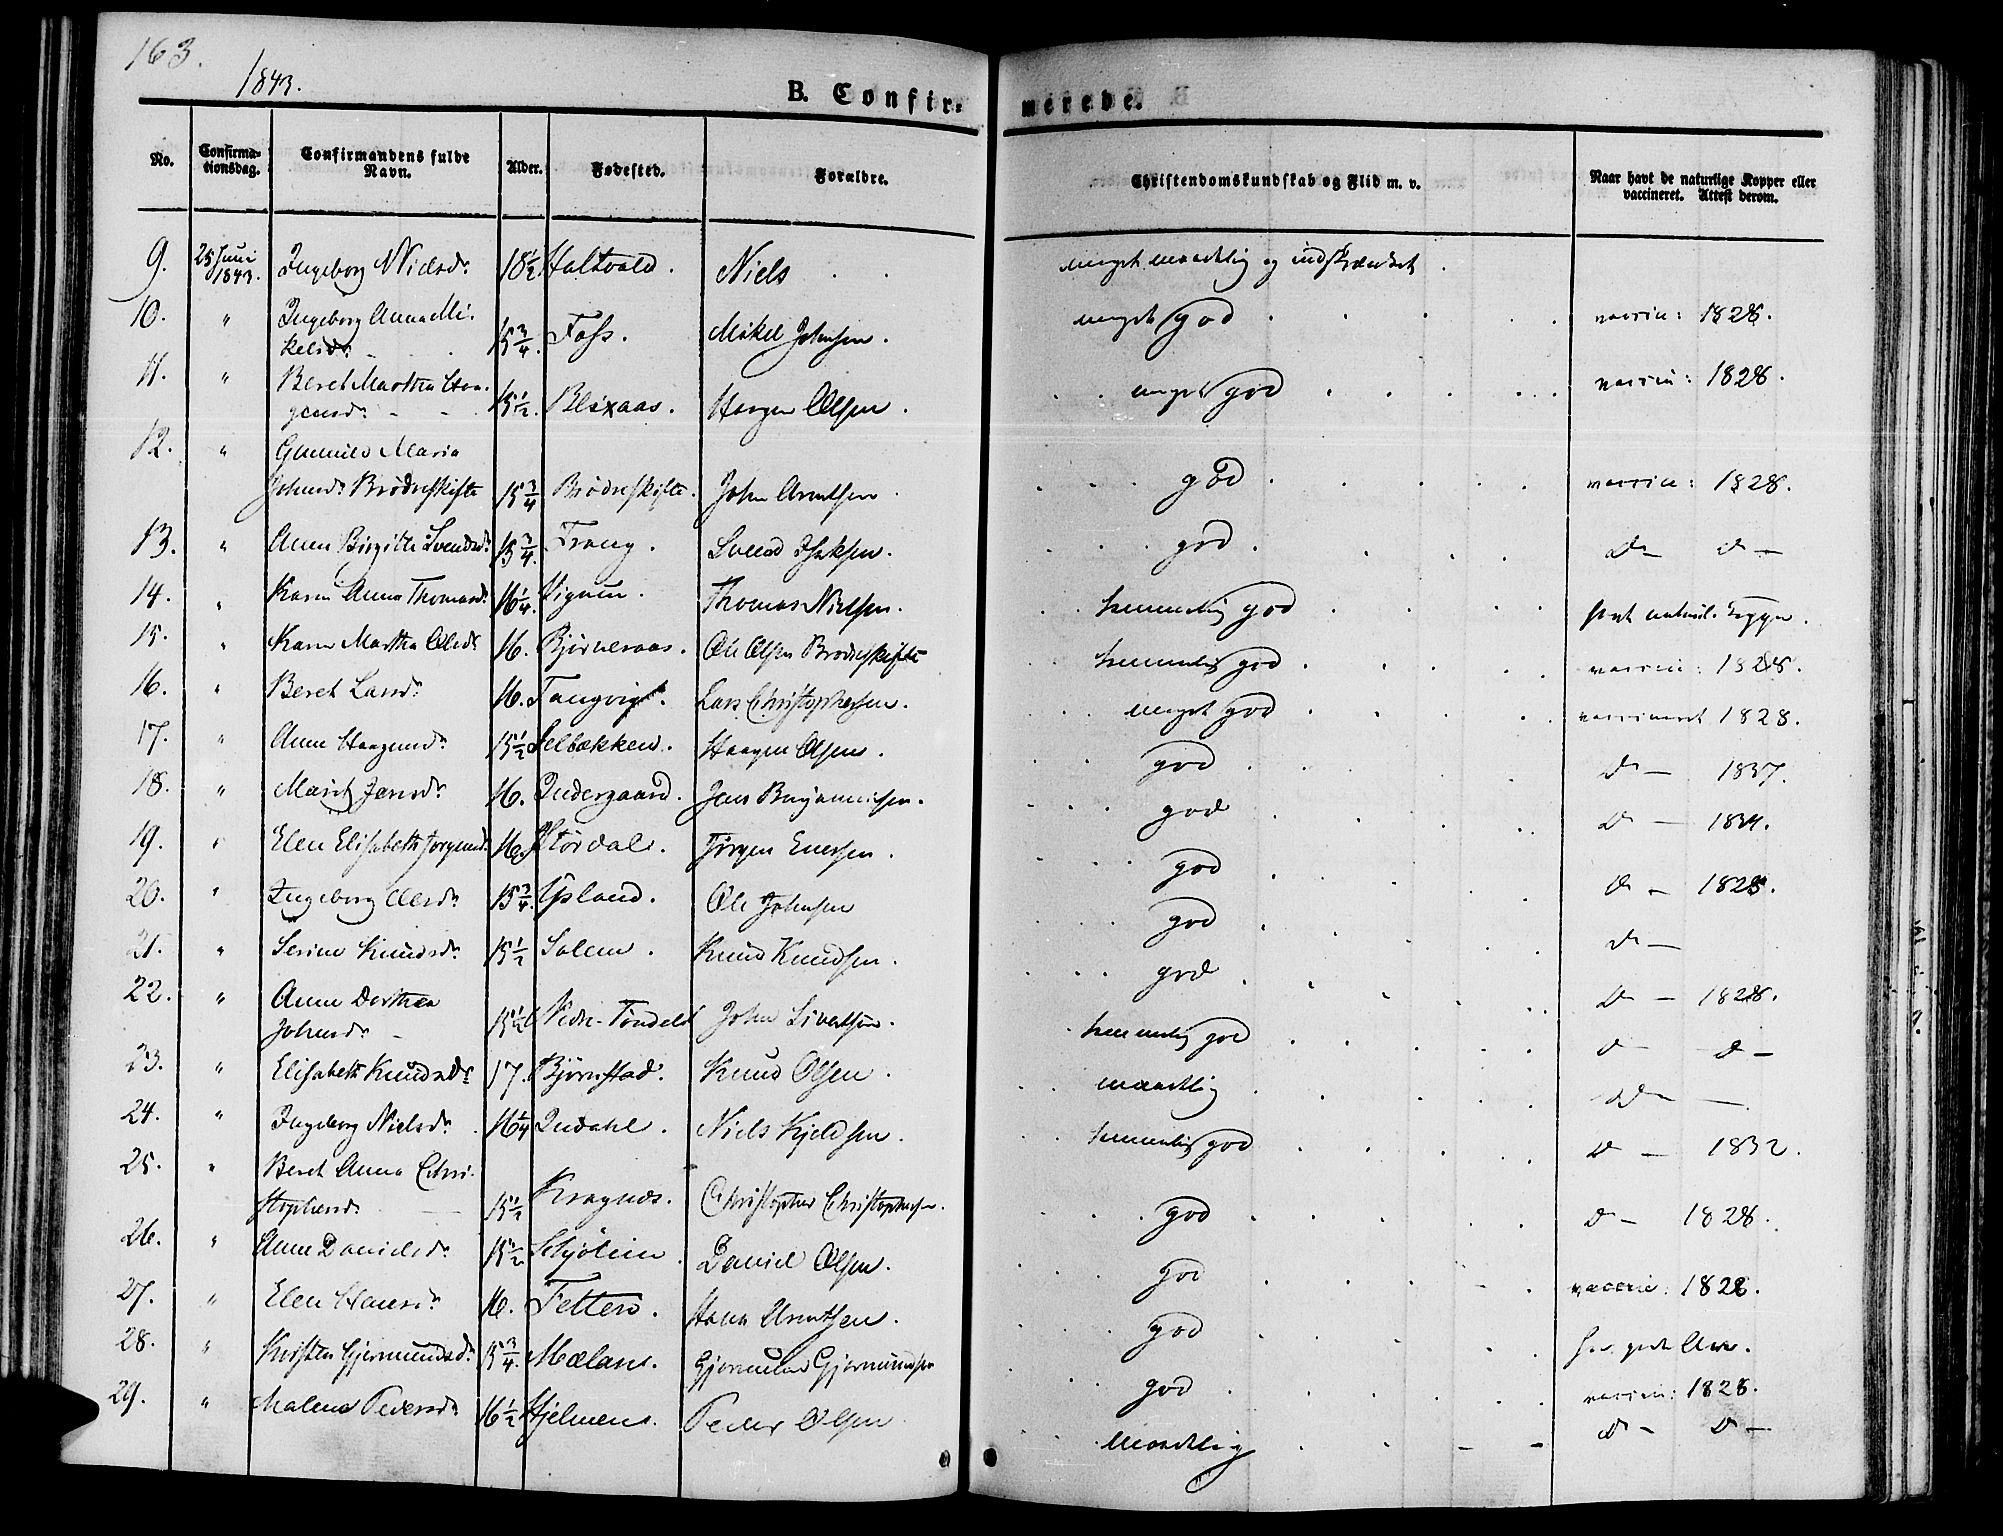 163.
1843.
B. Confir- merede.
No. Confirma-tionsdag. Confirmandens fulde Navn. Alder. Fødested. Forældre. Christendomskundskab og Flid m. v. Naar havt de naturlige Kopper eller vaccineret. Attest derom.
9. 25 Juni 1843. Ingeborg Nielsdr 18½ Haltvald. Niels meget maadelig og indskrænket.
10. " Ingeborg Anna Mi-
kelsdr 15¾. Foss. Mikel Johnsen. meget god vaccin: 1828.
11. " Beret Martha Haa-
gensdr 15½. Blixaas. Haagen Olsen. meget god vaccin: 1828.
12. " Gunnild Maria
Johnsdr Brødreskifte 15¾ Brødreskifte. John Arntsen god vaccin: 1828.
13. " Anne Birgithe Svendsdr 15¾. Trang. Svend Isaksen. god. D— D—
14. " Karen Anna Thomasdr 16¼. Vignen. Thomas Nielsen. temmelig god havt naturl. Kopper.
15. " Karen Martha Olsdr 16. Bjørneraas. Ole Olsen Brødreskifte temmelig god vaccin: 1828.
16. " Beret Larsdr 16. Tangvig. Lars Christophersen. meget god vaccineret 1828.
17. " Anne Haagensdr 15½ Selbækken. Haagen Olsen. god D— 1837.
18. " Marit Jensdr 16. Indergaard. Jens Benjaminsen. god D— 1834.
19. " Elen Elisabeth Jørgensdr 16. Størdal. Jørgen Enersen. god D— 1828.
20. " Ingeborg Olsdr 15¾. Opland. Ole Johnsen god D—
21. " Serine Knudsdr 15½ Solem. Knud Knudsen. god D— 1828.
22. " Anne Dorthea
Johnsdr 15½ Nedre-Tøndel John Sivertsen. temmelig god D— D—
23. " Elisabeth Knudsdr 17. Bjørnstad. Knud Olsen. maadelig D— —
24. " Ingeborg Nielsdr 16¼ Indahl. Niels Kjeldsen. temmelig god D— 1832.
25. " Beret Anna Chri-
stophersdr 15½ Kragnes. Christopher Christophersen. god D— 1828.
26. " Anne Danielsdr 15½ Schjølein Daniel Olsen. god vaccin: 1828.
27. " Elen Hansdr 16. Tetterø. Hans Arntsen. god
28. " Kirsten Gjermundsdr 15¾. Mælan. Gjermund Gjermundsen god vaccin: 1828.
29. " Malena Pedersdr 16½ Hjelmens. Peder Olsen maadelig D— D—